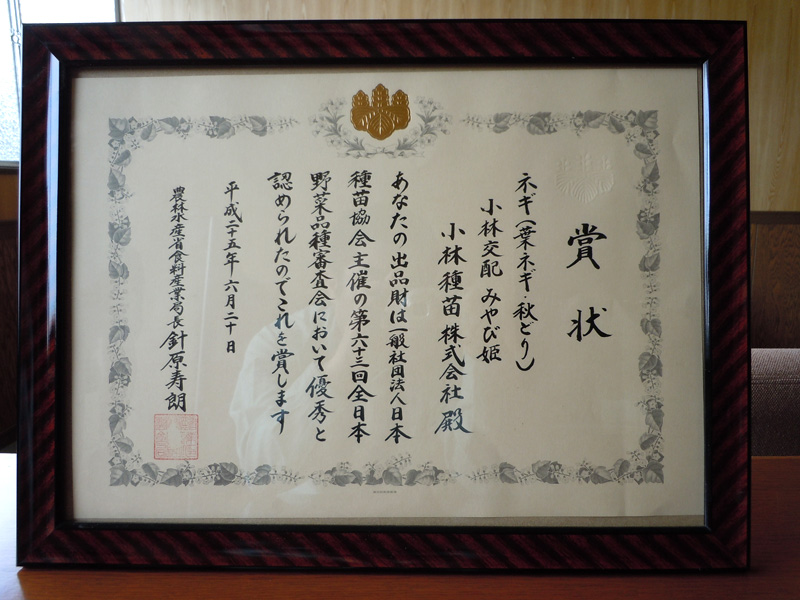 賞状
ネギ(葉ネギ・秋どり)
小林交配 みやび姫
小林種苗株式会社殿
あなたの出品財は一般社団法人日本
種苗協会主催の第六十三回全日本
野菜品種審査会において優秀と
認められたのでこれを賞します
平成二十五年六月二十日
農林水産省食料産業局長 針原寿朗